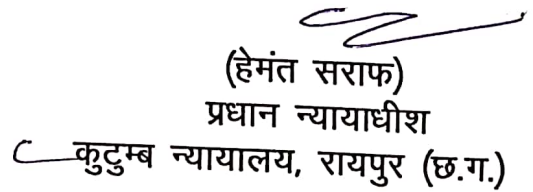 (हेमंत सराफ)
प्रधान न्यायाधीश
कुटुम्ब न्यायालय, रायपुर (छ.ग.)